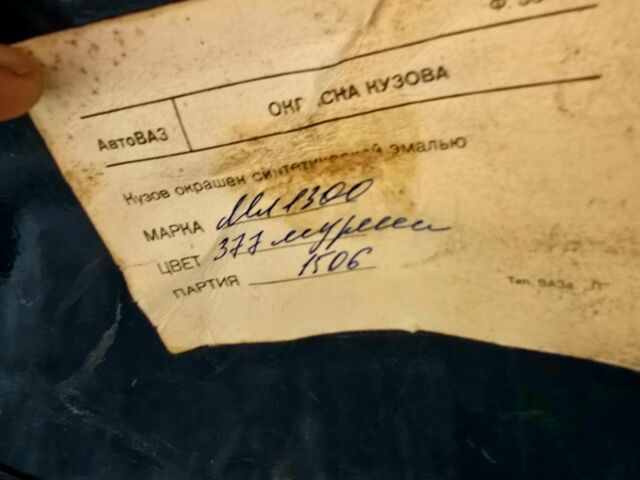 АвтоВАЗ
ОКРАСКА КУЗОВА
Кузов окрашен синтетической эмалью
МАРКА Мл 1300
ЦВЕТ 377 мурена
ПАРТИЯ 1506
Тип. ВАЗа